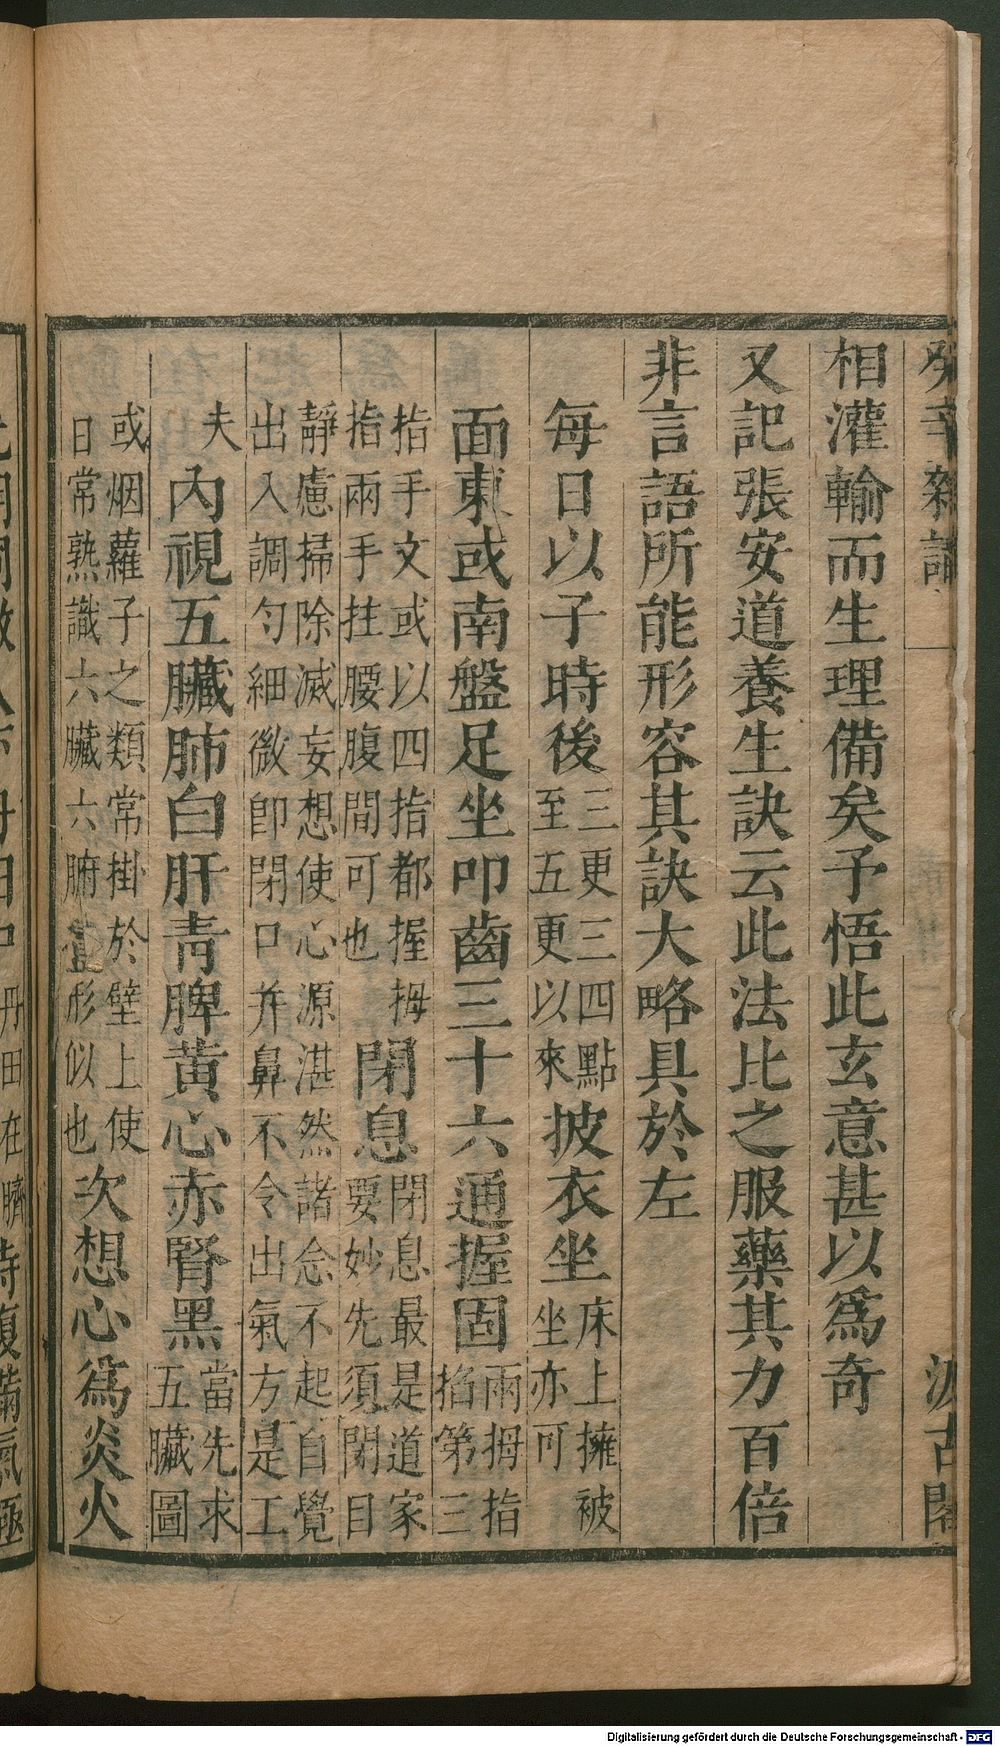 癸辛雜識 一 汲古閣
相灌輸而生理備矣予悟此玄意甚以爲奇
又記張安道養生訣云此法比之服藥其力百倍
非言語所能形容其訣大略具於左
每日以子時後三更三四點至五更以來披衣坐床上擁被坐亦可
面東或南盤足坐叩齒三十六通握固兩拇指掐第三
指手文或以四指都握拇指兩手拄腰腹間可也閉息閉息最是道家要妙先須閉目
靜慮掃除滅妄想使心源湛然諸念不起自覺出入調勻細微卽閉口并鼻不令出氣方是工
夫內視五臟肺白肝靑脾黃心赤腎黑當先求五臟圖
或烟蘿子之類常掛於壁上使日常熟識六臟六腑形似也次想心爲炎火
丹田在臍
Digitalisierung gefördert durch die Deutsche Forschungsgemeinschaft - DFG